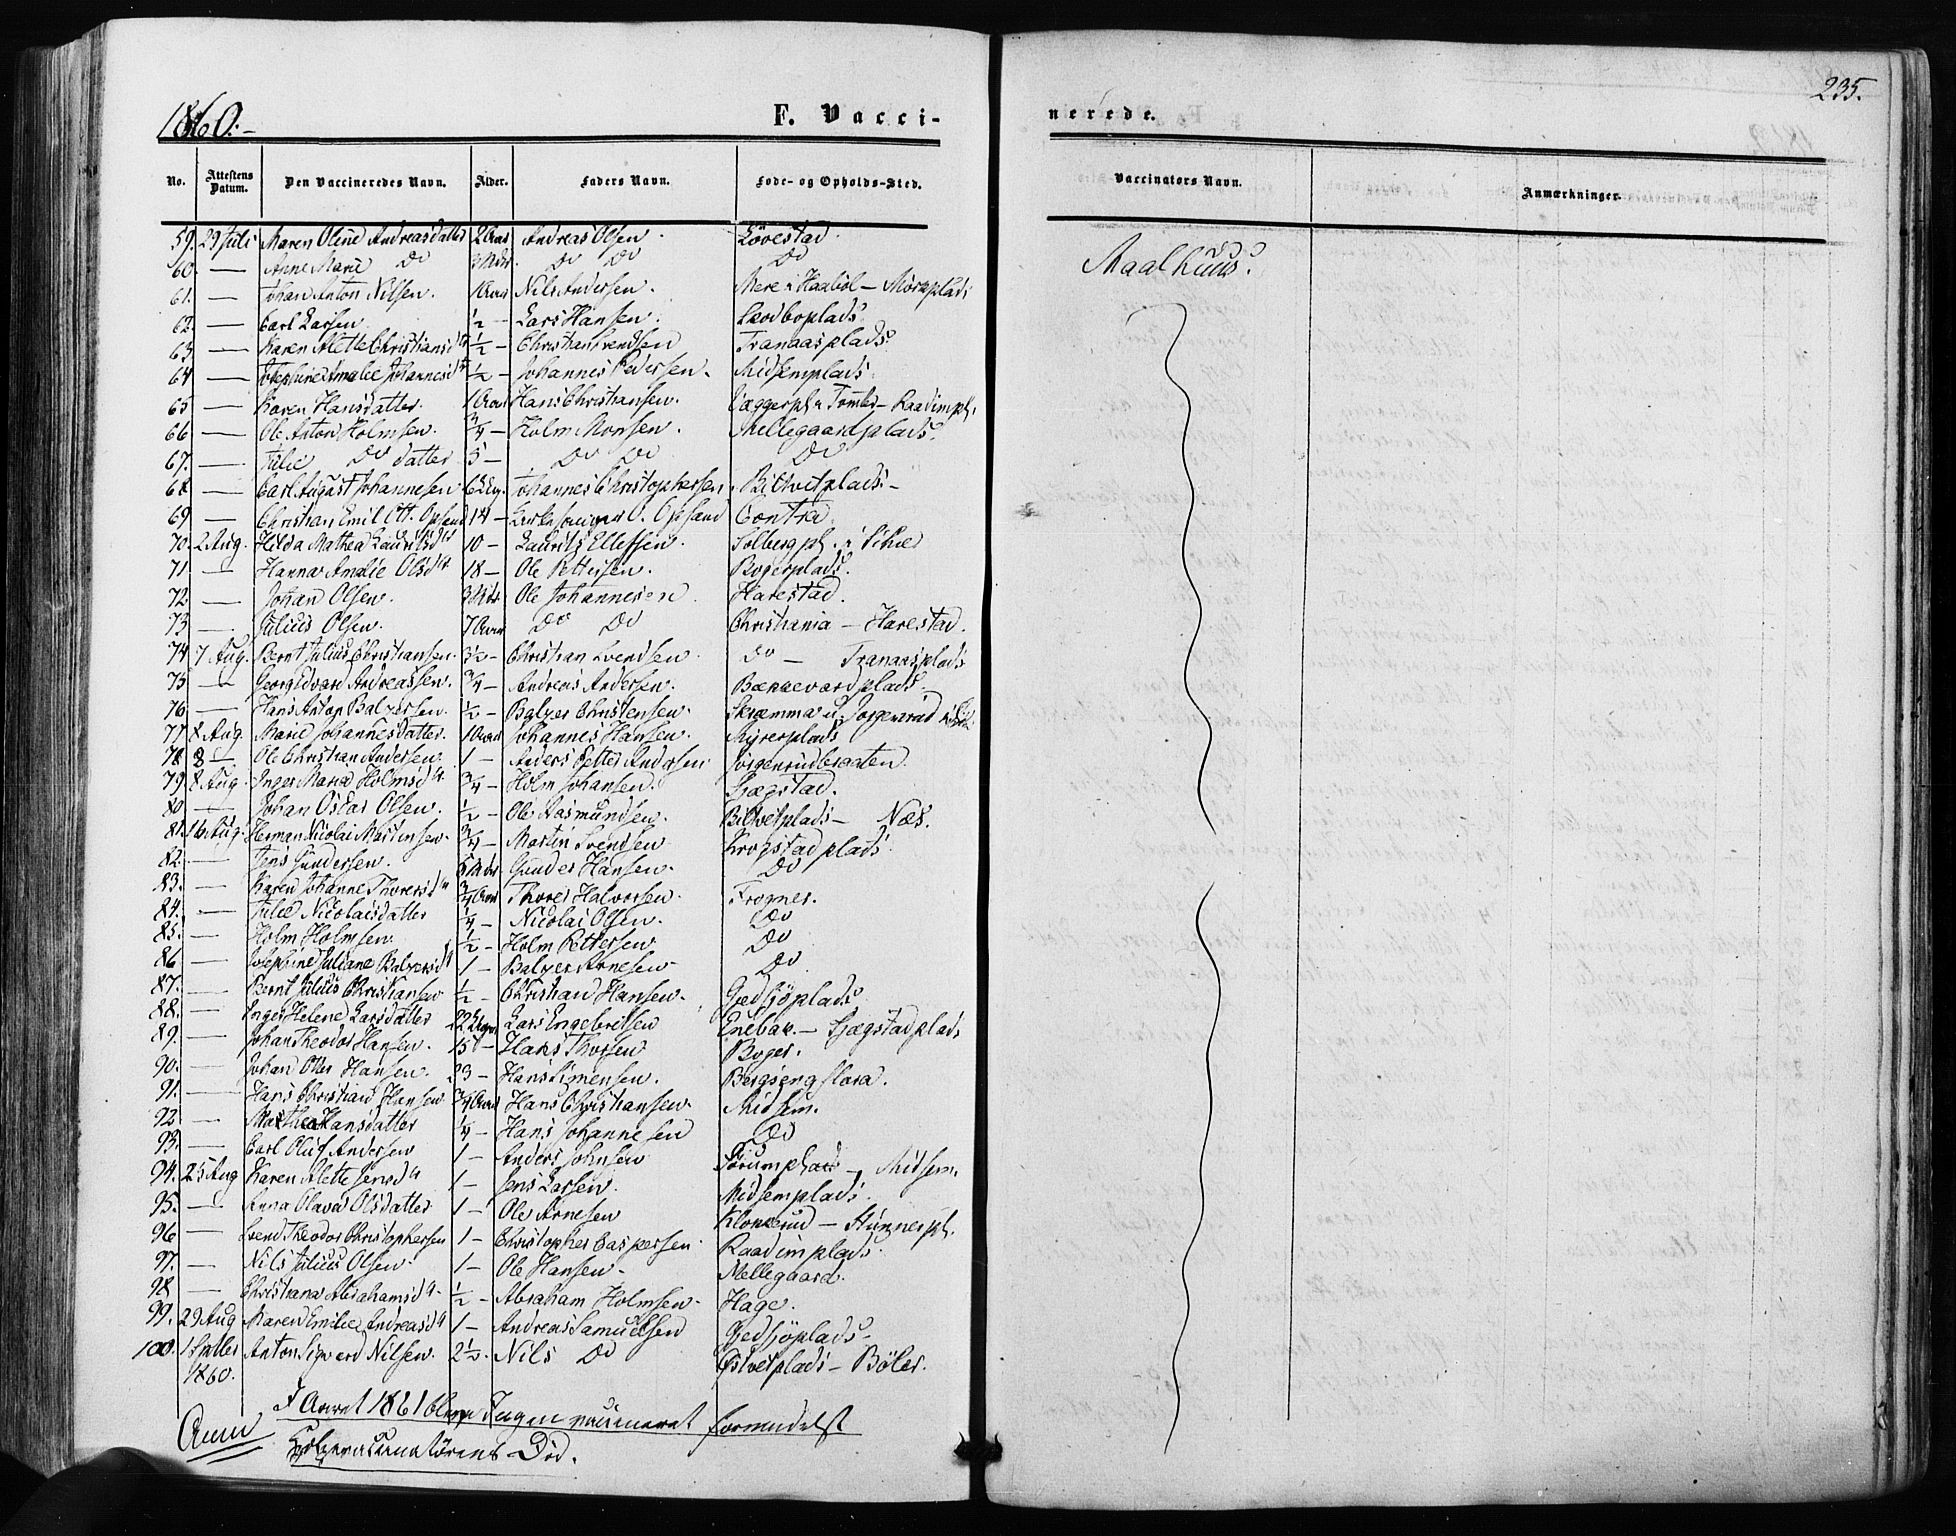 1860.-
F. Vacci-
No. Attestens Datum. Den Vaccineredes Navn. Alder. Faders Navn. Føde- og Opholds-Sted.
59. 29 Juli Maren Oline Andreasdatter 2 Aar Andreas Olsen. Lövestad.
60. — Anne Marie Do 3 Do Do Do
61. — Johan Anton Nilsen. 1 Aar Nils Andersen. Haaböl — plads
62. — Carl Larsen ½ — Lars Hansen.
63 — Karen Alette Christiansd ½ — Christian Svendsen Tranaasplads
64 — Josephine Amalie Johannesd ½ — Johannes Pedersen. Midsemplads.
65 — Karen Hansdatter. 1 Aar Hans Christiansen. — Raadimpl.
66 — Ole Anton Holmsen. ¾ — Holm Monsen. Mellegaardplads.
67. — Julie Do datter 5 — Do Do Do
68 — Carl August Johannesen 6 Johannes Christophersen. Biltvetplads. —
69 — Christian Emil Ott. Opsand 14 — Kirkesanger O. Opsand Contra.
70. 2 Aug. Hilda Mathea Lauritsd 10 — Lauritz Ellefsen. Solbergpl. i
71 — Hanna Amalie Olsd 18 — Ole Pettersen. Bogerplads.
72 — Johan Olsen. 3 Ole Johannesen. Harestad.
73 — Julius Olsen. 7 Aar Do Do Christiania — Harestad.
74 7 Aug. Bernt Julius Christiansen. 3½ — Christian Svendsen. Do — Tranaasplads
75 — Georg Edvard Andreassen. ¾ — Andreas Andersen. plads.
76 — Hans Anton Balzersen. ½ — Balzer Christensen.
77 8 Aug. Marie Johannesdatter 1 Aar Johannes Hansen. Myrerplads
78 8 — Ole Christian Andersen 1 — Anders Petter Andersen Jörgensrudbraaten.
79. 8 Aug. Inger Maria Holmsd ¾ — Holm Johansen. Sjægstad.
80 — Johan Oskar Olsen. ½ — Ole Rasmundsen. Biltvetplads — Næs.
81. 16 Aug. Herman Nicolai Martinsen. ¾ — Martin Svendsen Krogstadplads.
82. — Jens Gundersen. 5 Gunder Hansen. Do
83. — Karen Johanne Thoresd ¾ Aar Thorer Halvorsen. Frogner.
84. — Julie Nicolaisdatter ¼ — Nicolai Olsen. Do
85. — Holm Holmsen. ½ — Holm Pettersen. Do
86 — Josephine Juliane Balzersd 1 — Balzer Arnesen Do
87. — Bernt Julius Christiansen ½ — Christian Hansen. Gjedsjöplads
88. — Inger Helene Larsdatter 22 Lars Engebritsen Enebak. — Sjægstadplads
89. — Johan Theodor Hansen. 15 — Hans Thorsen Boger.
90. — Johan Otter Hansen. 23 — Hans Simensen. Bergsengflora.
91. — Hans Christian Hansen ¾ Aar Hans Christiansen. Midsem.
92 — Mathea Hansdatter ¼ — Hans Johannesen Do
93. — Carl Oluf Andersen 1 — Anders Johnsen Sörumplads — Midsem.
94. 25 Aug Karen Alette Jensd 1 — Jens Larsen. Midsemplads.
95. — Anna Olava Olsdatter 1 — Ole Arnesen Klokkerud — Hunnerpl.
96 — Svend Theodor Christophersen 1 — Christopher Caspersen. Raadimplads.
97. — Nils Julius Olsen. 1 — Ole Hansen — Mellegaard.
98 — Christiane Abrahamsd ½ — Abraham Holmsen — Hage.
99. 29 Aug Karen Emilie Andreasd 1 — Andreas Samuelsen Gjedsjöplads.
100. 1 Sptbr 1860. Anton Sigverd Nilsen. 2½. Nils Do Østvetplads — Böler.
Anm I Aaret 1861 blev Ingen vaccineret formedelst
Hjelpevaccinatörens Död.
235.
nerede.
Vaccinators Navn. Anmærkninger.
Aaalhuus.